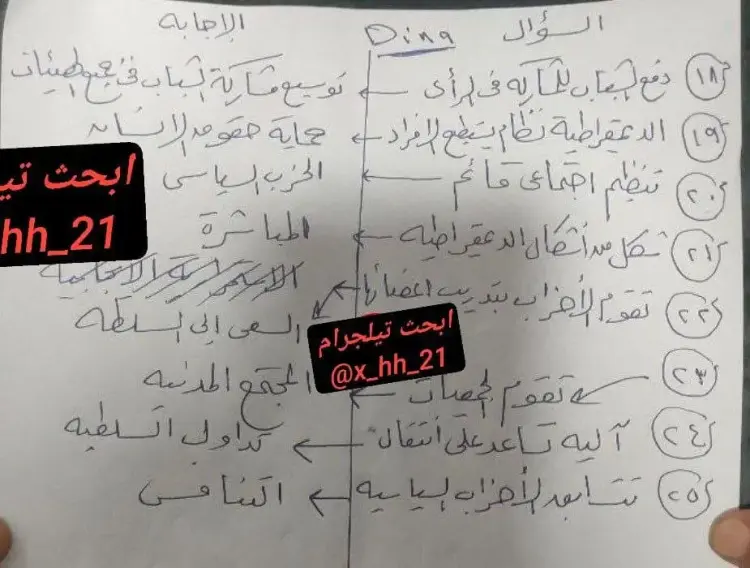 السؤال Dina الإجابة
١٨ دفع الشباب للمشاركة فى الرأى ← توسيع مشاركة الشباب فى جميع الهيئات
١٩ الديمقراطية نظام يستطيع الافراد ← حماية حقوق الانسان
٢٠ تنظيم اجتماعى قائم ← الحزب السياسى
٢١ شكل من أشكال الديمقراطية ← المباشرة
٢٢ تقوم الأحزاب بتدريب اعضائها ← السعى إلى السلطة
٢٣ تقوم الجمعيات ← المجتمع المدنى
٢٤ آلية تساعد على أنتقال ← تداول السلطة
٢٥ تتسابق الأحزاب السياسية ← التنافس
ابحث تي
hh_21
ابحث تيلجرام
@x_hh_21